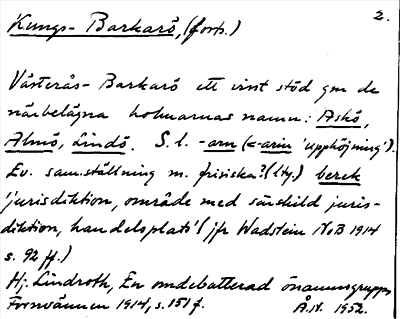 2.
Kungs-Barkarö, (forts.)
Västerås-Barkarö ett visst stöd gm de
närbelägna holmarnas namn: Askö,
Almö, Lindö. S. l. -arn (<-arin 'upphöjning').
Ev. samställning m. frisiska? (lty.) berek
'jurisdiktion, område med särskild juris-
diktion, handelsplats' (jfr Wadstein NoB 1914
s. 92 ff.)
Hj. Lindroth, En omdebatterad önamnsgrupp
Fornvännen 1914, s. 151 f. Å.N. 1952.